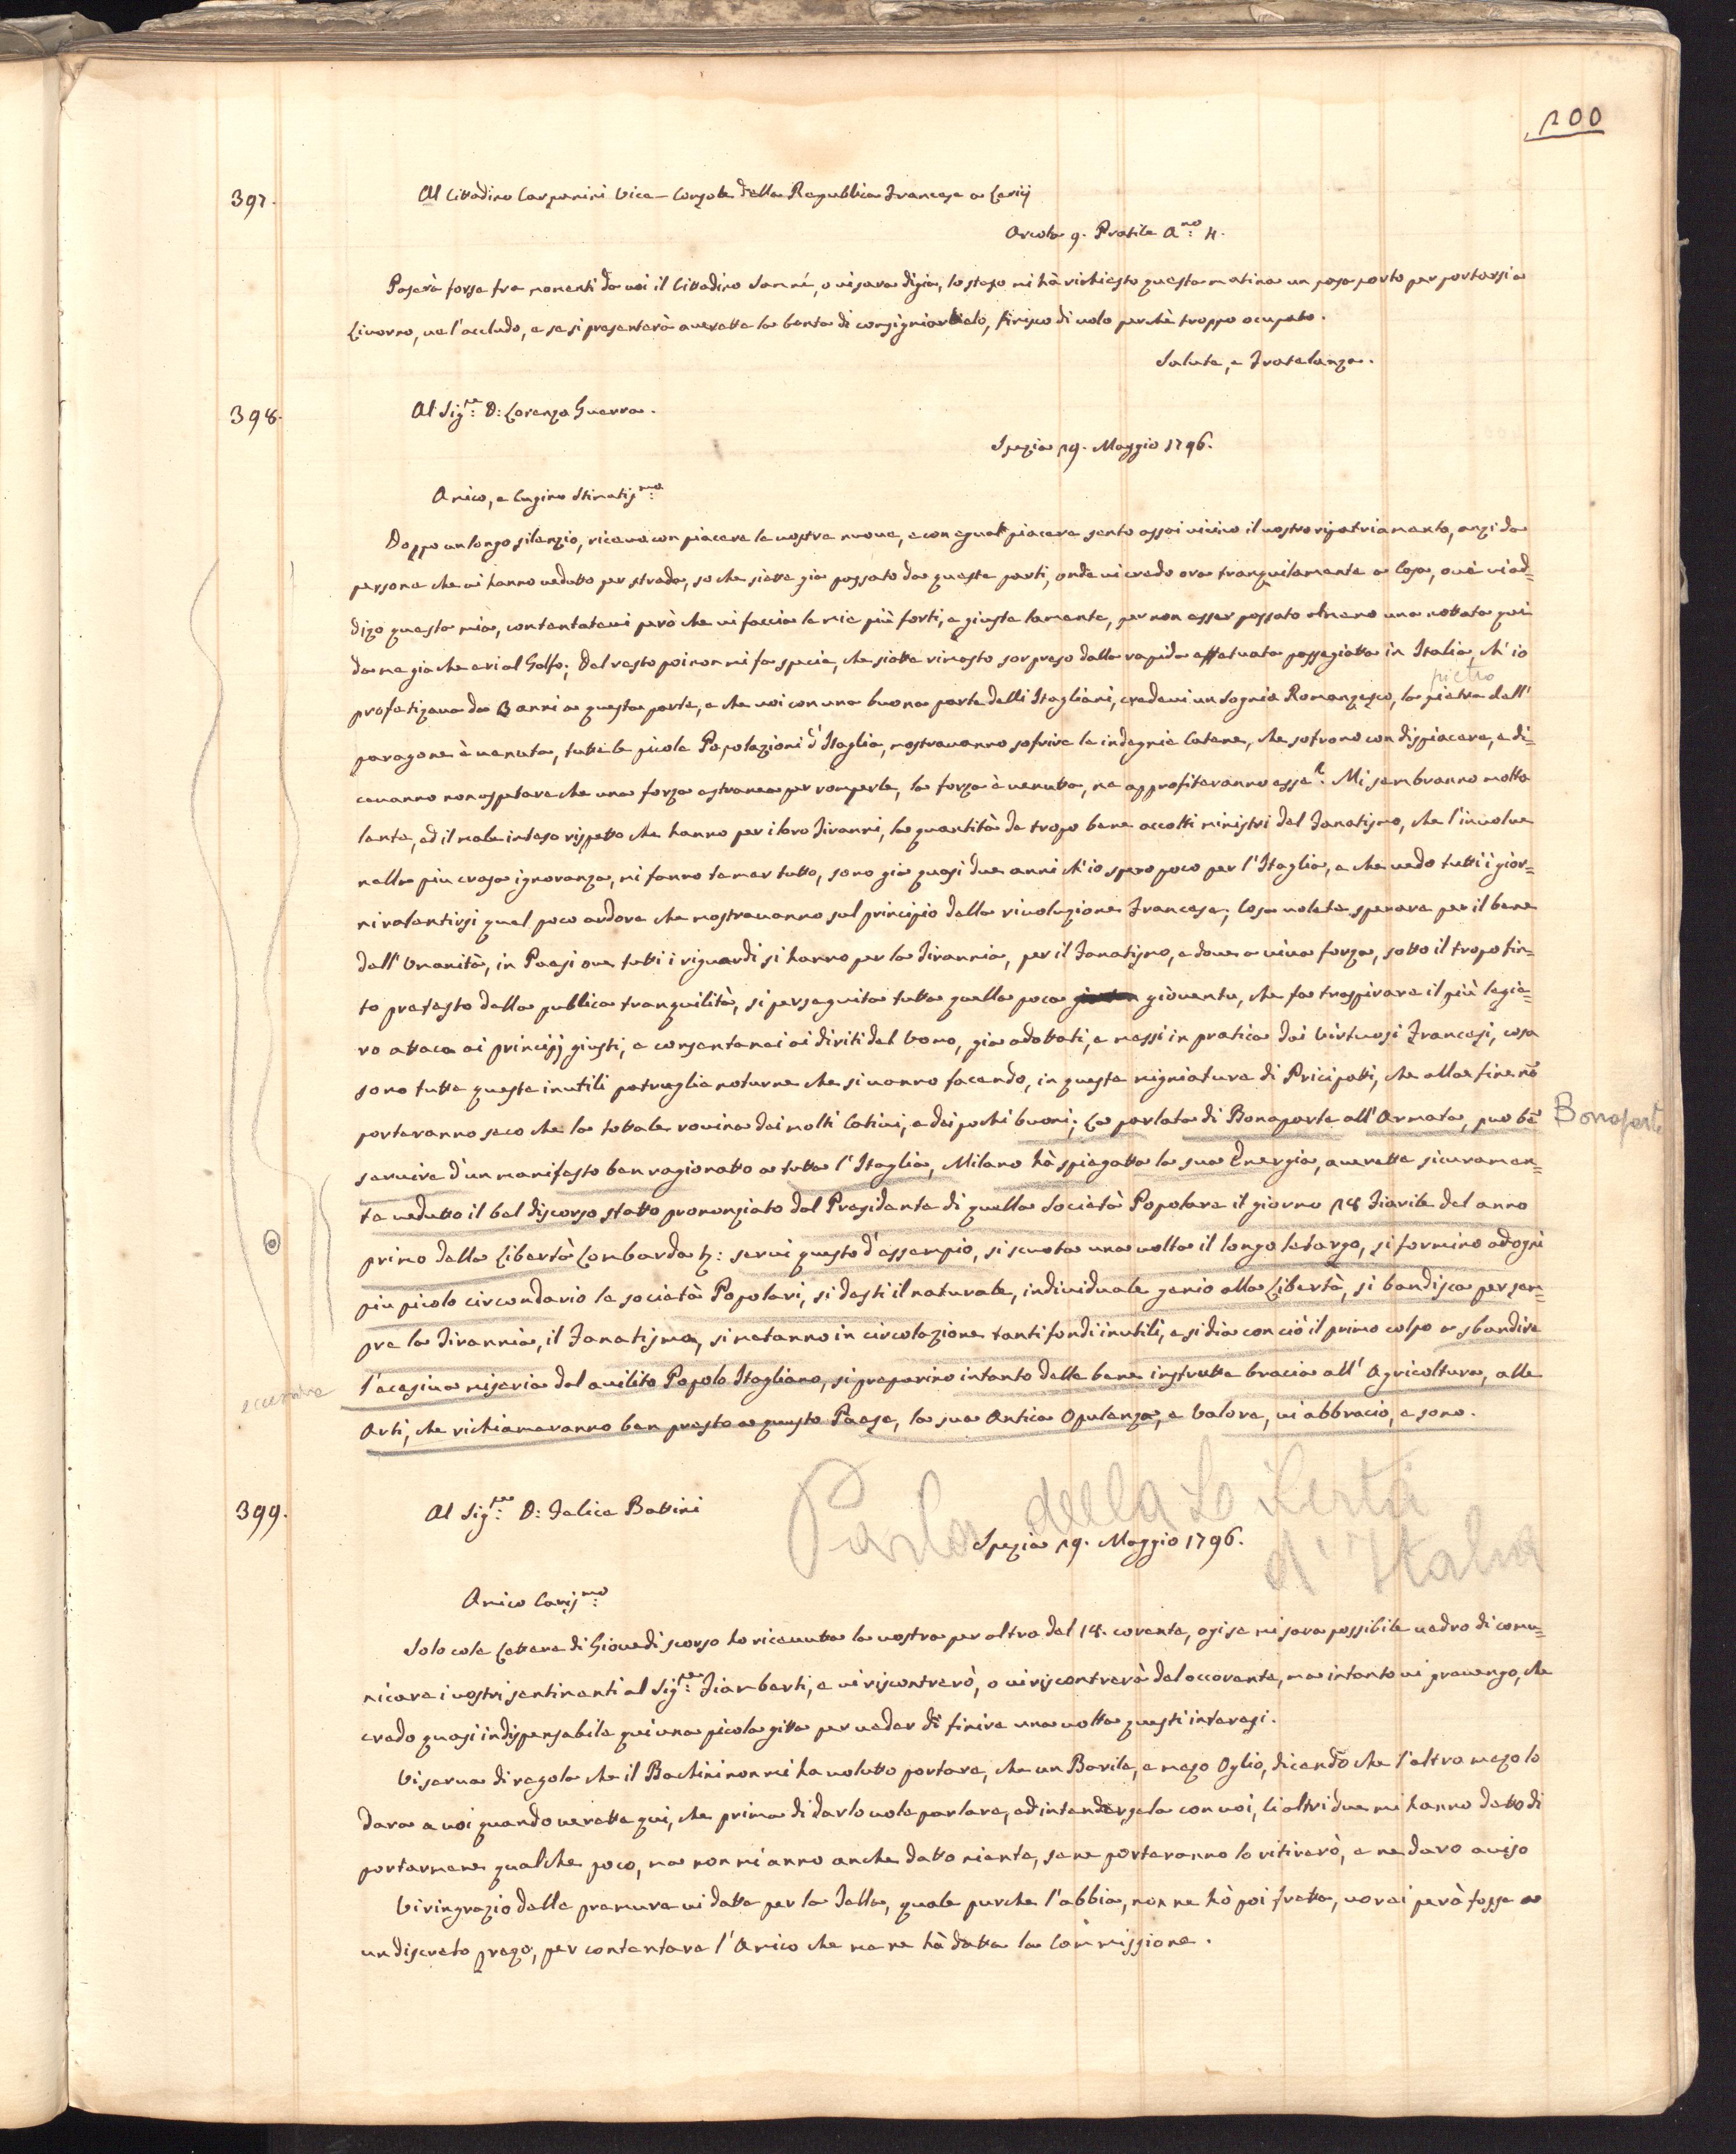 200
397.
Al Cittadino Carpanini Vice-Console della Republica Francese a Lerici
Arcola 9. Pratile A.no 4.
Paserà forse fra momenti da voi il Cittadino Sanné, o vi sara digia, lo steso mi hà richiesto questa matina un pasaporto per portarsi a
Livorno, ve l'accludo, e se si presenterà averette la bonta di consigniarlielo, finisco di volo perchè troppo ocupato.
Salute, e Fratelanza.
398.
Al Sig.re D: Lorenzo Guerra.
Spezia 29. Maggio 1796.
Amico, e Cugino Stimatis.mo
Doppo un longo silenzio, ricevo con piacere le vostre nuove, e con egual piacere sento assai vicino il vostro ripatriamento, anzi da
persone che vi hanno vedutto per strada, so che siette gia passato da queste parti, onde vi credo ora tranquilamente a Casa, ove vi ad=
dizo questa mia, contentatevi però che vi faccia le mie più forti, e giuste lamente, per non esser passato almeno una nottata qui
da me gia che eri al Golfo; Del resto poi non mi fa specie, che siatte rimasto sorpreso dalla rapida effetuata passegiatta in Italia, ch'io
pietra
profetizava da 3 anni a questa parte, e che voi con una buona parte delli Itagliani, credevi un Sognio Romanzesco, la pietra dell'
paragone è venuta, tutte le picole Popolazioni d'Itaglia, mostravanno sofrire le indegnie Catene, che sofrono con dispiacere, e di=
cevanno non aspetare che una forza estranea per romperle, la forza è venutta, ne approfiteranno esse? Mi sembranno molto
lente, ed il male inteso rispetto che hanno per i loro Tiranni, la quantità de tropo bene accolti ministri del Fanatismo, che l'involve
nella piu crasa ignoranza, mi fanno temer tutto, sono già quasi due anni ch'io spero poco per l'Itaglia, e che vedo tutti i gior=
ni ralentirsi quel poco ardore che mostravanno sul principio della rivoluzione Francese; Cosa volete sperare per il bene
dell'Umanità, in Paesi ove tutti i riguardi si hanno per la Tirannia, per il Fanatismo, e dove a viva forza, sotto il tropo fin=
to pretesto della publica tranquilità, si perseguita tutta quella poca gioventu, che fa traspirare il più legie=
ro attaco ai principj giusti, e consentanei ai diriti del Uomo, gia adottati, e messi in pratica dai Virtuosi Francesi, cosa
sono tutte queste inutili patruglie noturne che si vanno facendo, in queste migniature di Pricipatti, che alla fine nō
porteranno seco che la tottale rovina dei molti Cativi, e dei pochi buoni; La parlata di Bonaparte all'Armata, puo bē
Bonaparte
servire d'un manifesto ben ragionatto a tutta l'Itaglia, Milano hà spiegatta la sua Energia, averette sicuramen=
te vedutto il bel discorso statto pronunziato dal Presidente di quella Società Popolare il giorno 28 Fiorile del anno
primo della Libertà Lombarda &: servi questo d'assempio, si scuota una volta il longo letargo, si formino ad ogni
piu picolo circondario le società Popolari, si desti il naturale, individuale genio alla Libertà, si bandisca per sem=
pre la Tirannia, il Fanatismo, si metanno in circolazione tanti fondi inutili, e si dia con ciò il primo colpo a sbandire
l'acesiva miseria del avilito Popolo Itagliano, si preparino intanto delle bene instrutte bracia all'Agricoltura, alle
eccessiva
Arti, che richiameranno ben presto a questo Paese, la sua Antica Opulenza, e Valore, vi abbracio, e sono.
Parla della Libertà
d'Italia
399.
Al Sig.re D: Felice Battini
Spezia 29. Maggio 1796.
Amico Caris.mo
Solo cole Lettere di Giovedi scorso ho ricevutta la vostra per altro del 18. corente, ogi se mi sara possibile vedro di comu=
nicare i vostri sentimenti al Sig.re Fiamberti, e vi riscontrerò, o vi riscontrerà del occorente, ma intanto vi prevengo, che
credo quasi indispensabile qui una picola gitta per veder di finire una volta questi interesi.
Vi serva di regola che il Bachini non mi ha volutto portare, che un Barile, e mezo Oglio, dicendo che l'altro mezo lo
dara a voi quando verette qui, che prima di darlo vole parlare, ed intendersela con voi, li altri due mi hanno detto di
portarmene qualche poco, ma non mi anno anche datto niente, se ne porteranno lo ritirerò, e ne daro aviso
Vi ringrazio delle premure vi datte per la Sella, quale purche l'abbia, non ne hò poi fretta, vorei però fosse a
un discreto prezo, per contentare l'Amico che me ne hà datta la Commissione.